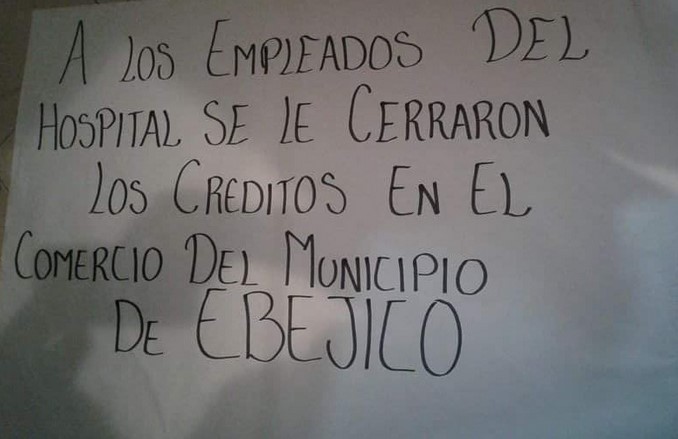 A LOS EMPLEADOS DEL
HOSPITAL SE LE CERRARON
LOS CREDITOS EN EL
COMERCIO DEL MUNICIPIO
DE EBEJICO